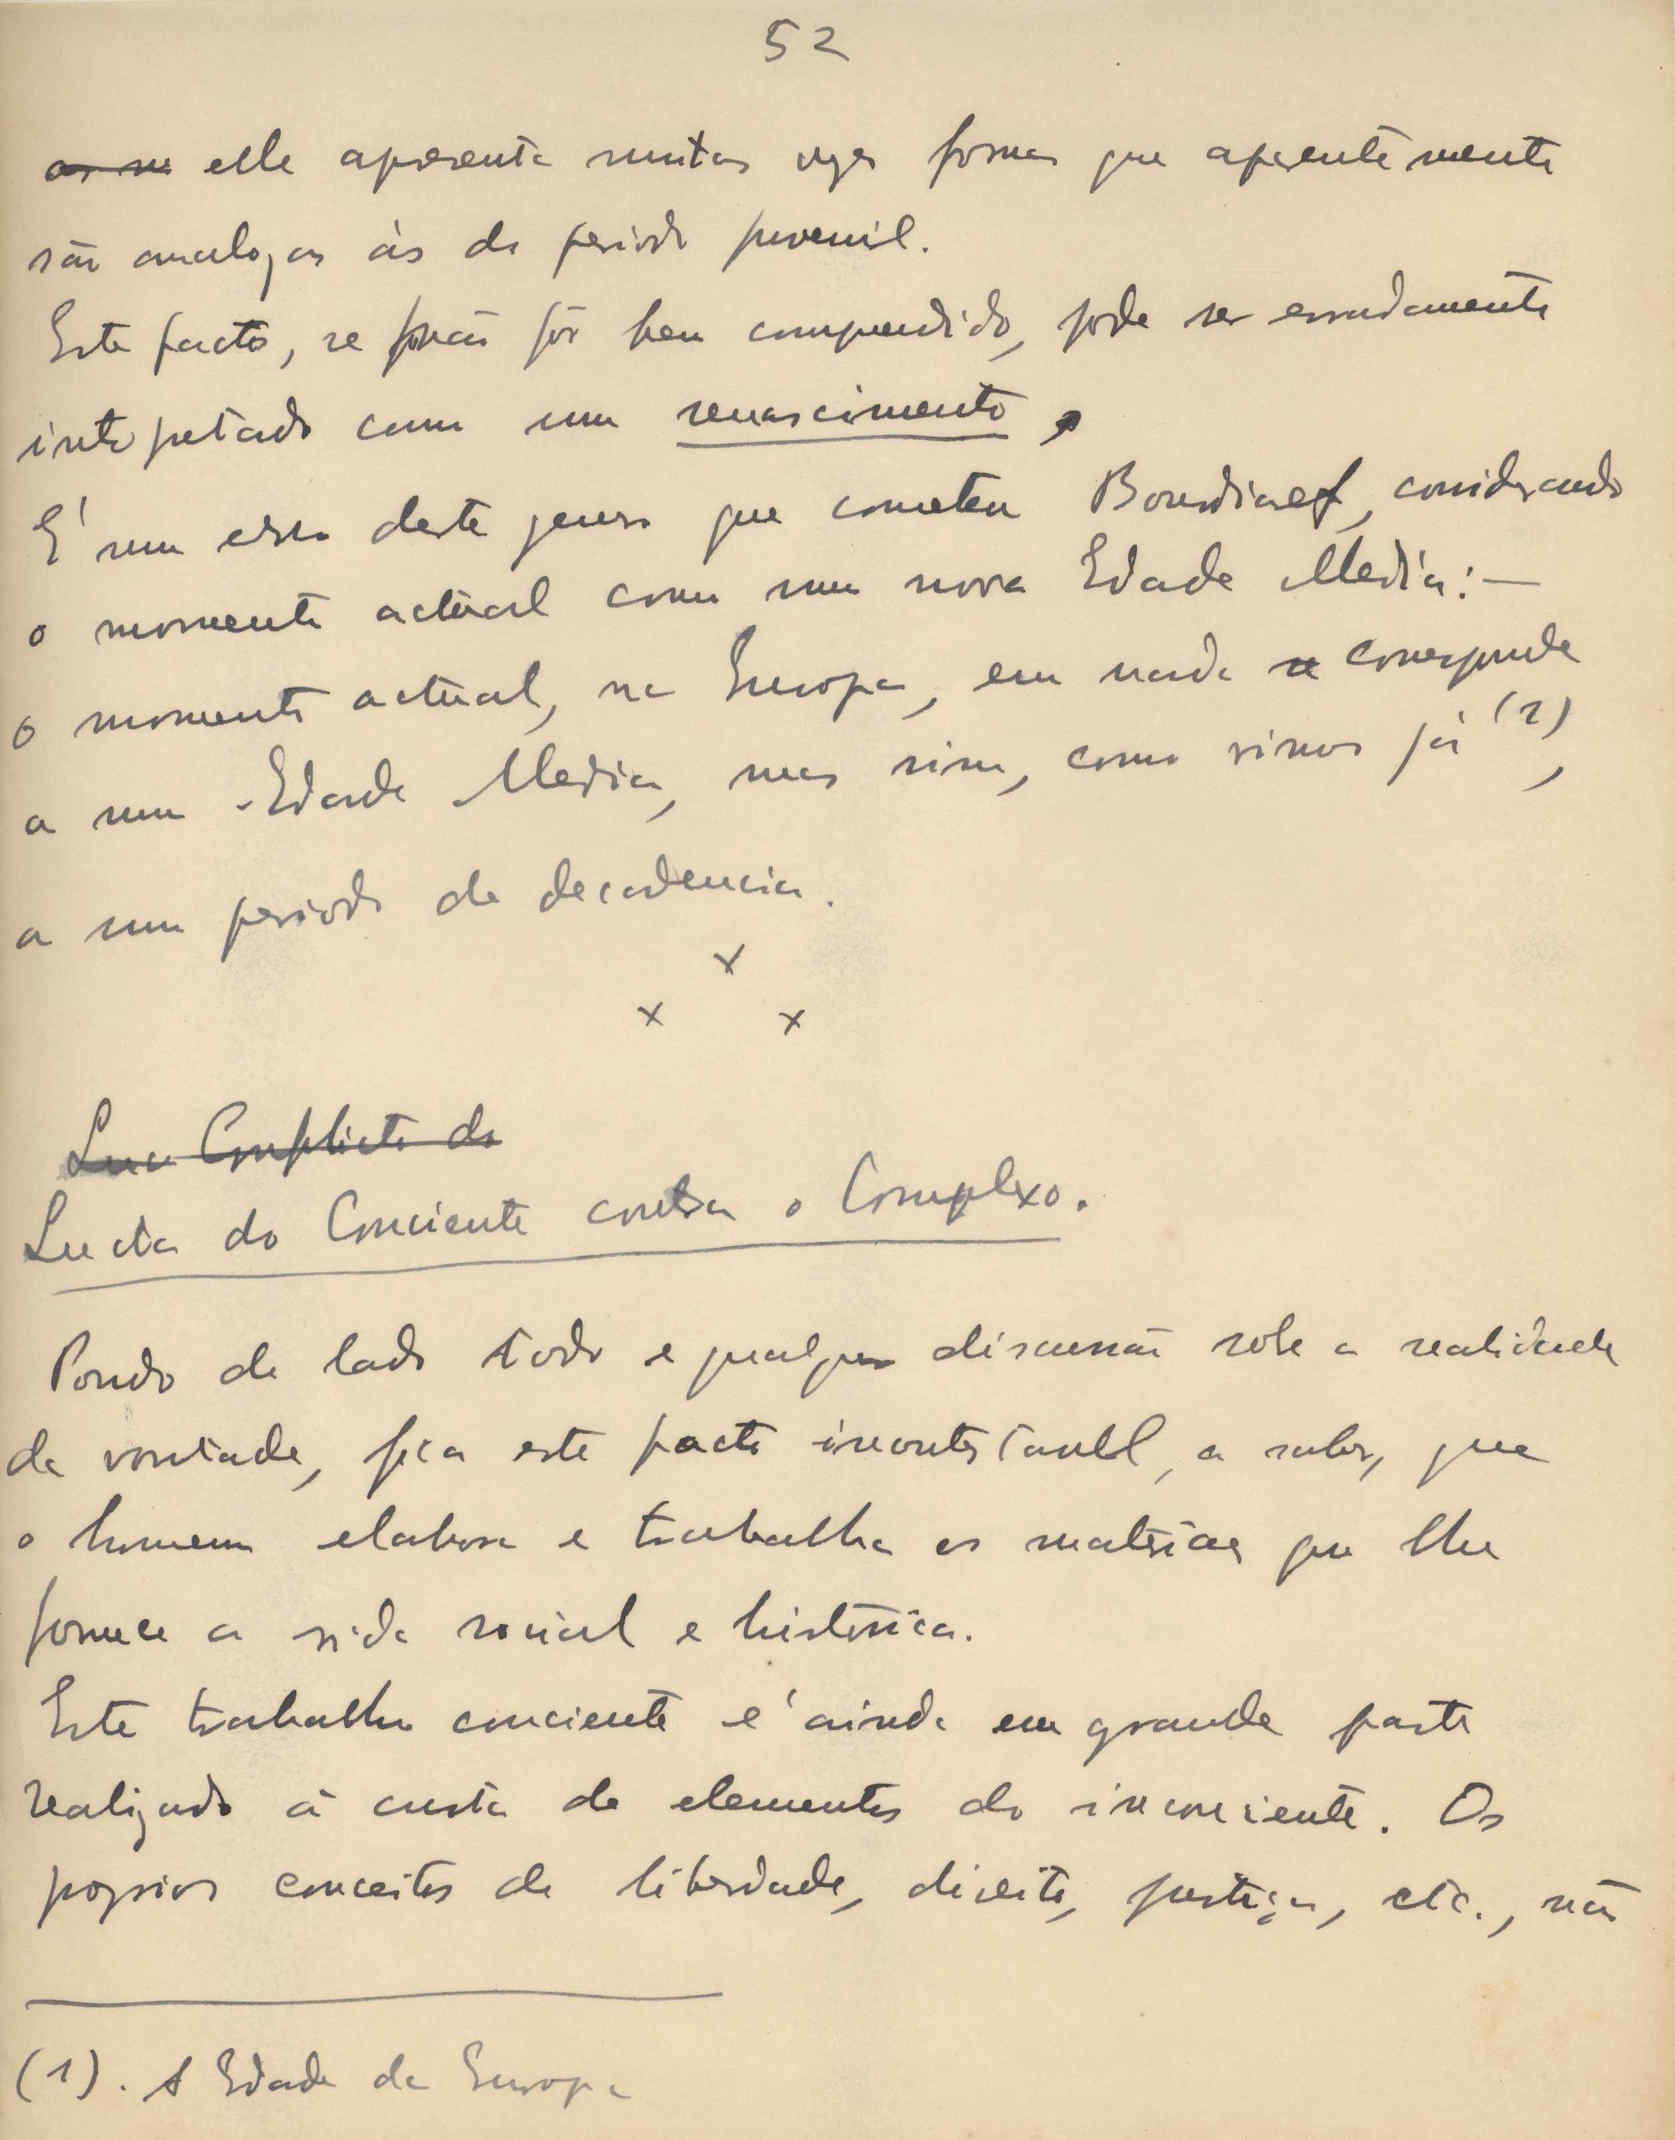 52
elle apresenta muitas vezes formas que aparentemente
são analogas ás do periodo juvenil.
Este facto, se não fôr bem comprendido, pode ser erradamente
interpretado como um renascimento.
É um erro deste genero que cometeu considerando
o momento actual como uma nova Edade Media:—
o momento actual, na Europa, em nada corresponde
a uma Edade Media, mas sim, como vimos já (1),
a um periodo de decadencia.
x
x x
Luc Conflicto do
Lucta do Conciente contra o Complexo.
Pondo de lado toda e qualquer discussão sobre a realidade
da vontade, fica este facto incontestavel, a saber, que
o homem elabora e trabalha os materiaes que lhe
fornece a vida social e historica.
Este trabalho conciente é ainda em grande parte
realizado á custa de elementos do inconciente. Os
proprios conceitos de liberdade, direito, justiça, etc., não
(1). A Edade da Europa